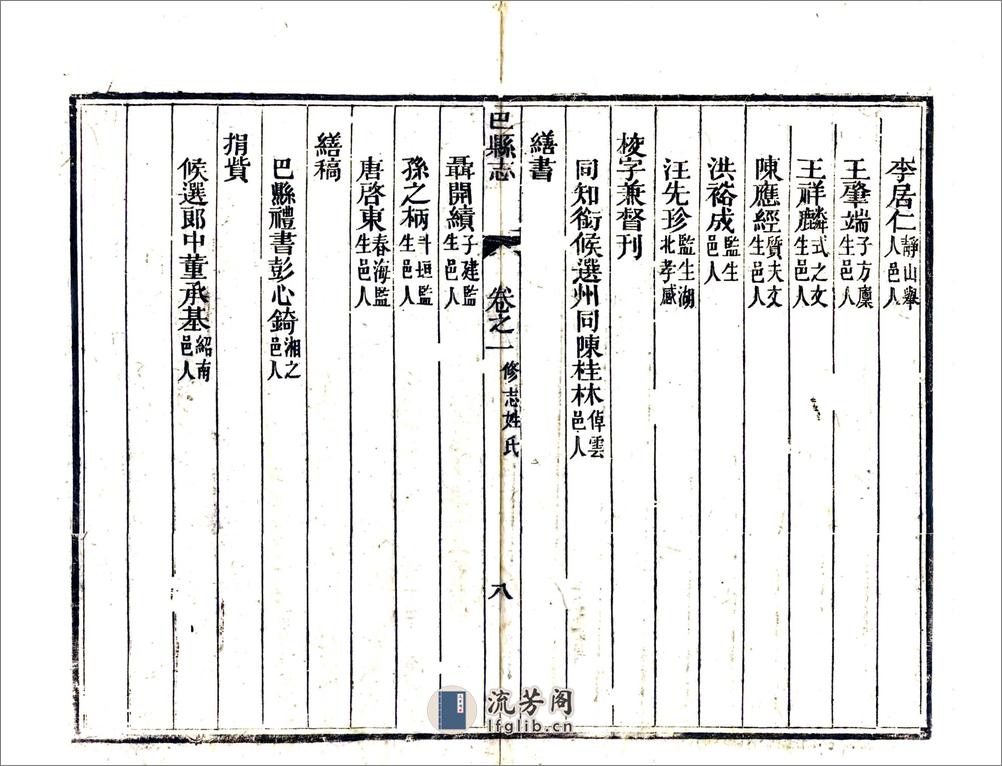 李居仁靜山舉人邑人
王肇端子方廪生邑人
王祥麟式之文生邑人
陳應經質夫文生邑人
洪裕成監生邑人
汪先珍監生湖北孝感
校字兼督刊
同知銜候選州同陳桂林倬雲邑人
繕書
巴縣志 卷之一 修志姓氏 八
聶開績子建監生邑人
孫之柄斗垣監生邑人
唐啓東春海監生邑人
繕稿
巴縣禮書彭心錡湘之邑人
捐貲
候選郎中董承基紹南邑人
流芳阁
lfglib.cn